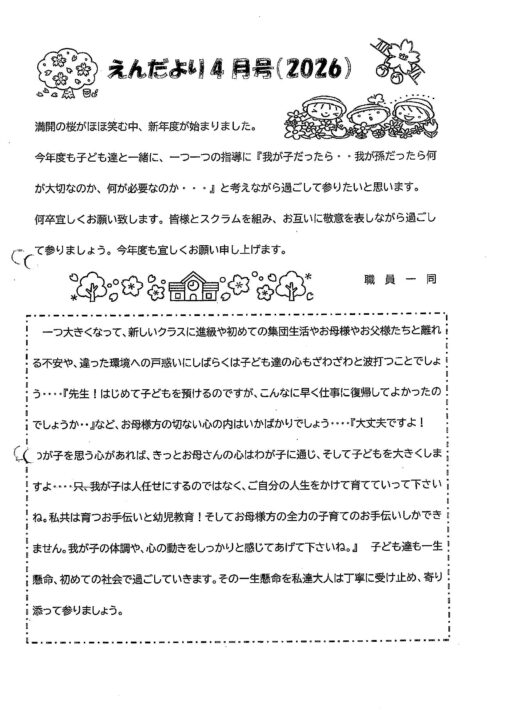 えんだより4月号(2026)
満開の桜がほほ笑む中、新年度が始まりました。
今年度も子ども達と一緒に、一つ一つの指導に『我が子だったら・・我が孫だったら何
が大切なのか、何が必要なのか・・・』と考えながら過ごして参りたいと思います。
何卒宜しくお願い致します。皆様とスクラムを組み、お互いに敬意を表しながら過ごし
て参りましょう。今年度も宜しくお願い申し上げます。
職員一同
一つ大きくなって、新しいクラスに進級や初めての集団生活やお母様やお父様たちと離れ
る不安や、違った環境への戸惑いにしばらくは子ども達の心もざわざわと波打つことでしょ
う‥‥『先生！はじめて子どもを預けるのですが、こんなに早く仕事に復帰してよかったの
でしょうか‥』など、お母様方の切ない心の内はいかばかりでしょう‥‥『大丈夫ですよ！
わが子を思う心があれば、きっとお母さんの心はわが子に通じ、そして子どもを大きくしま
すよ‥‥只、我が子は人任せにするのではなく、ご自分の人生をかけて育てていって下さい
ね。私共は育つお手伝いと幼児教育！そしてお母様方の全力の子育てのお手伝いしかでき
ません。我が子の体調や、心の動きをしっかりと感じてあげて下さいね。』　子ども達も一生
懸命、初めての社会で過ごしていきます。その一生懸命を私達大人は丁寧に受け止め、寄り
添って参りましょう。